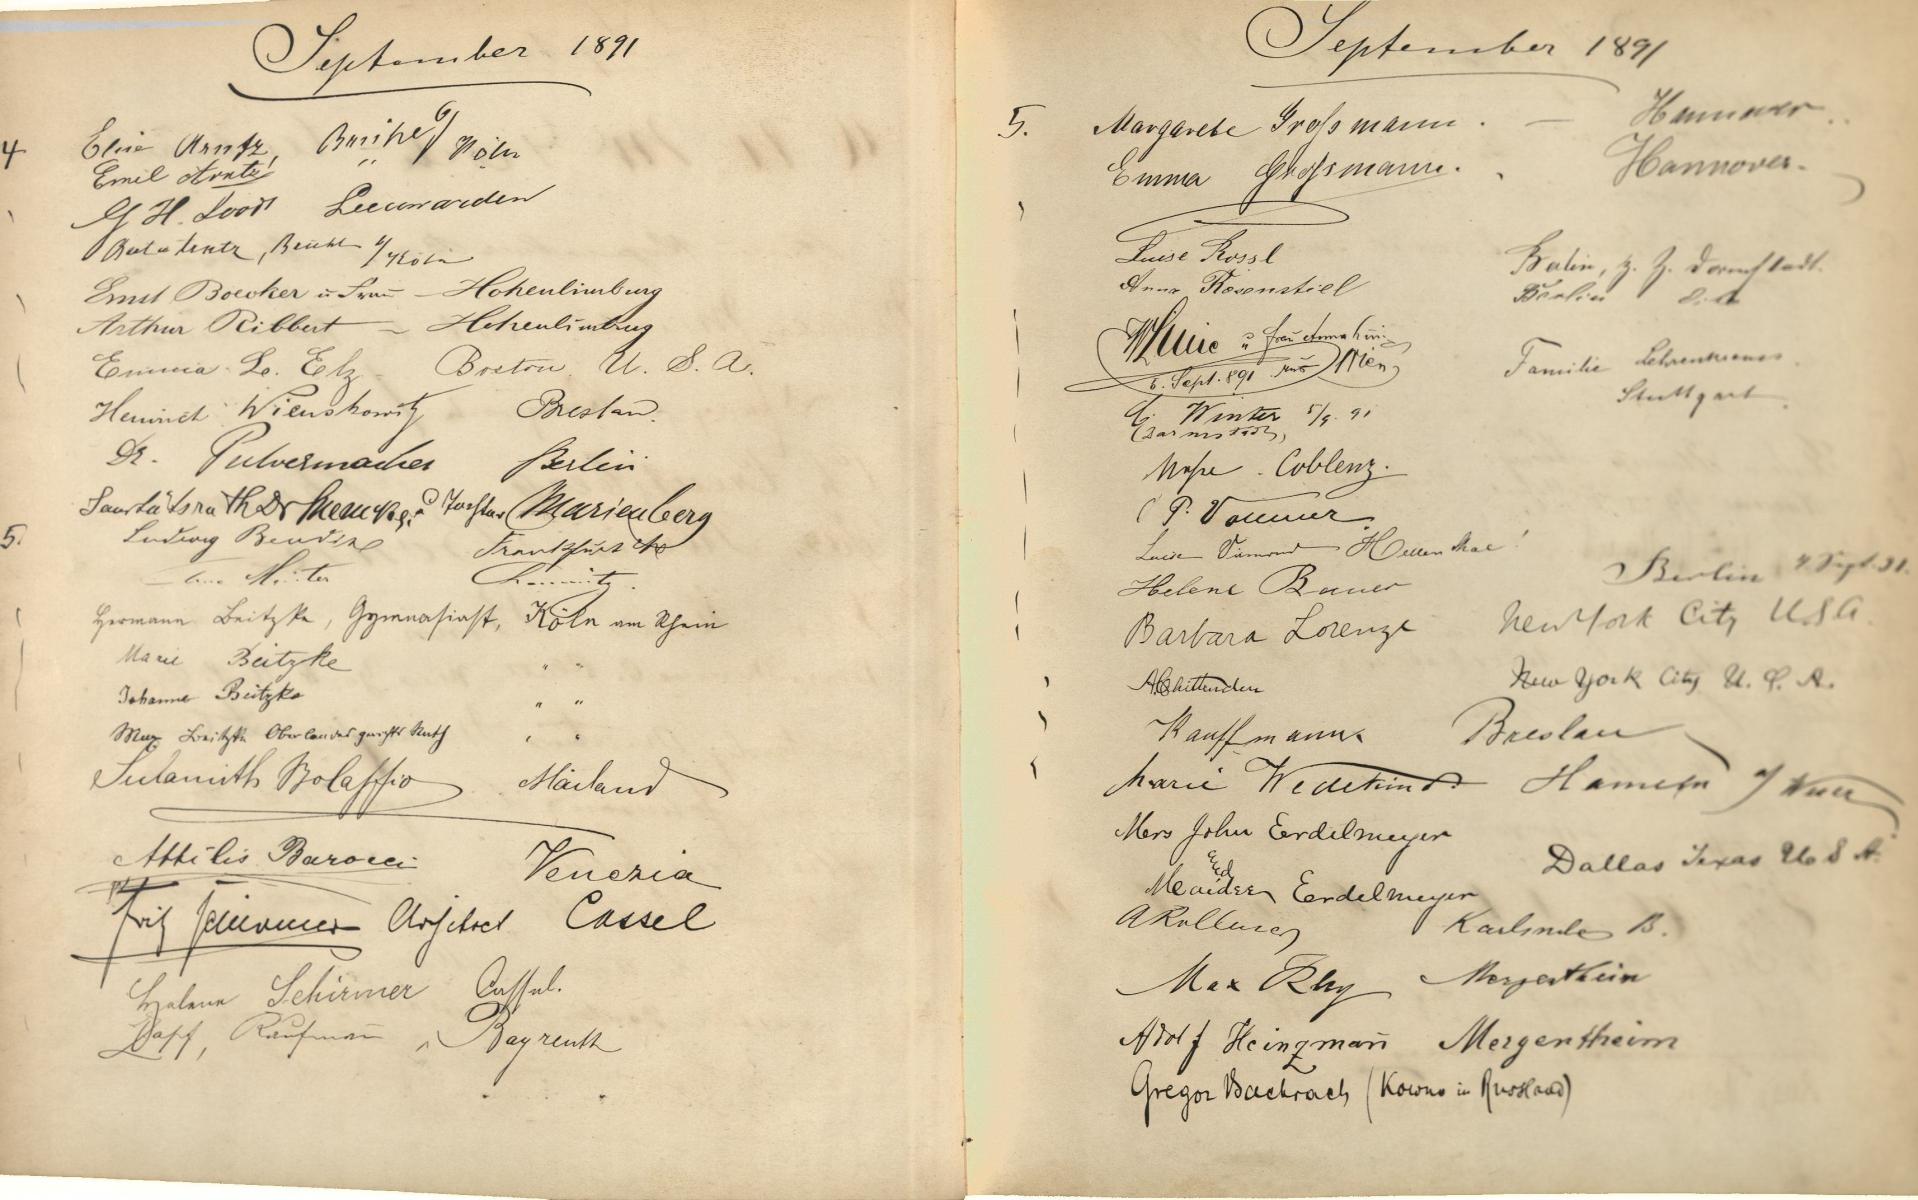 September 1891
4
Elise Arntz, Brühl b/ Köln
Emil Arntz "
G H. Loodt Leeuwarden
Lentz, Brühl b/Köln
Ernst Boecker u Frau - Hohenlimburg
Arthur Ribbert - Hohenlimburg
Emma Le. Elz Boston U. S. A.
Heinrich Wienskowitz Breslau.
Dr. Pulvermacher Berlin
Sanitätsrath Dr u Tochter Marienberg
5.
Ludwig Bendix Frankfurt
Chemnitz.
Hermann Beitzke, Gymnasiast, Köln am Rhein
Marie Beitzke " "
Johanne Beitzke " "
Max Beitzke Oberlandesgerichts Rath " "
Sulamith Bolaffio Mailand
Attilio Barocci Venezia
Fritz Schirmer Architect Cassel
Helene Schirmer Cassel.
Zapf, Kaufmann, Bayreuth
September 1891
5.
Margarete Grossmann. — Hannover.
Emma Grossmann. Hannover.
Luise Rossl Berlin, z. Z. Darmstadt.
Anna Rosenstiel Berlin
u Frau Anna
5. Sept. 891 aus Wien
Familie
Stuttgart
E. Winter 5/9. 91
Darmstadt,
Coblenz.
P. Vommer
Luise
Helene Bauer Berlin 4 Sept. 91.
Barbara Lorenze New York City USA.
A. Chittenden New York City U. S. A.
Kauffmann Breslau
Marie Wedekind Hameln a/ Weser
Mrs John Eerdelmeyer
Dallas Texas U. S A.
and
Meaider Eerdelmeyer
A Rollmer Karlsruhe B.
Max Rhy Mergentheim
Adolf Heinzmann Mergentheim
Gregor Bachrach (Kowno in Russland)